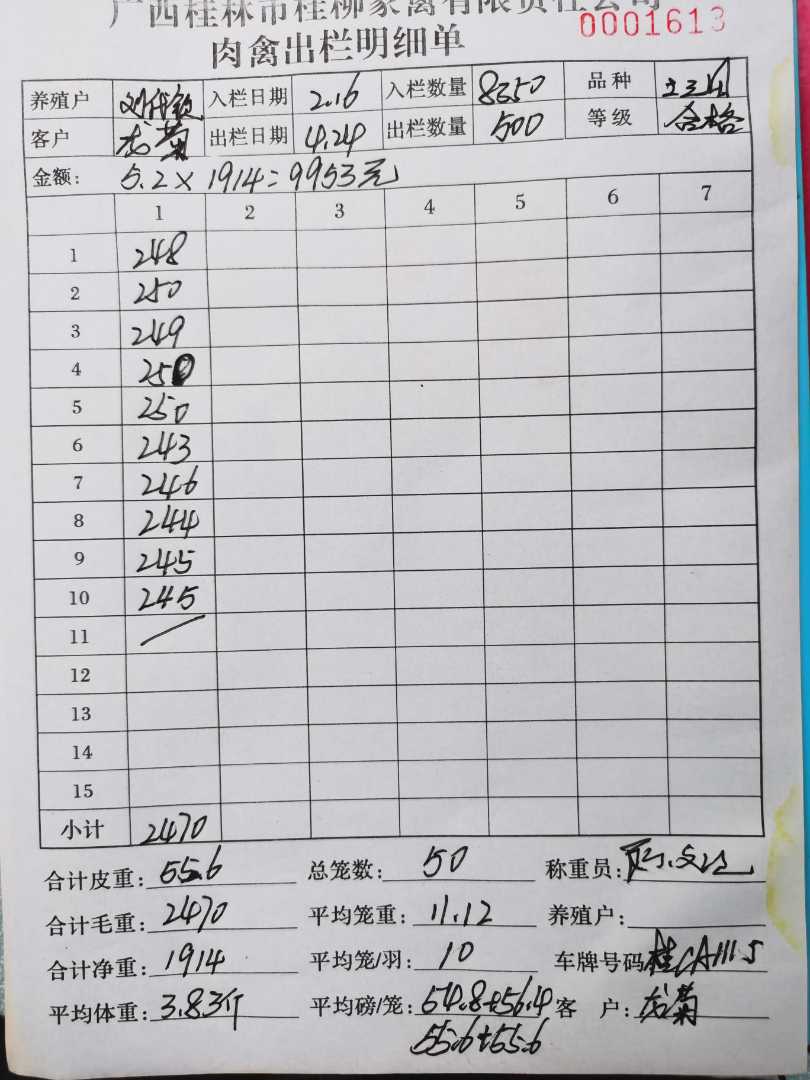 广西桂林市桂柳家禽有限责任公司
0001613
肉禽出栏明细单
养殖户 入栏日期 2.16 入栏数量 8350 品种
客户 龙菊 出栏日期 4.24 出栏数量 500 等级 合格
金额: 5.2×1914=9953元
1 2 3 4 5 6 7
1 248
2 250
3 249
4 250
5 250
6 243
7 246
8 244
9 245
10 245
11
12
13
14
15
小计 2470
合计皮重: 55.6 总笼数: 50 称重员:
合计毛重: 2470 平均笼重: 11.12 养殖户:
合计净重: 1914 平均笼/羽: 10 车牌号码 桂CA111.5
平均体重: 3.83斤 平均磅/笼: 54.8+56.4 客 户: 龙菊
55.6+55.6